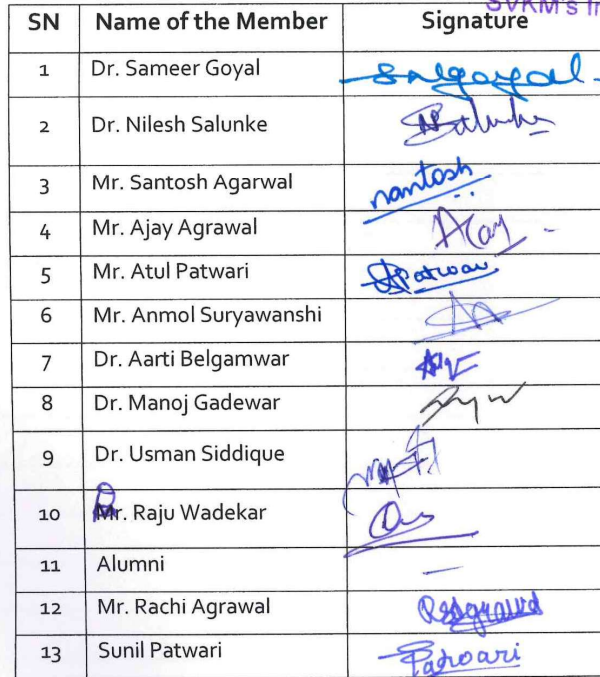 SVKM's In
SN Name of the Member Signature
1 Dr. Sameer Goyal Salgoyal
2 Dr. Nilesh Salunke Salunke
3 Mr. Santosh Agarwal Santosh
4 Mr. Ajay Agrawal Ajay
5 Mr. Atul Patwari APatwari
6 Mr. Anmol Suryawanshi
7 Dr. Aarti Belgamwar
8 Dr. Manoj Gadewar
9 Dr. Usman Siddique
10 Dr. Raju Wadekar
11 Alumni –
12 Mr. Rachi Agrawal
13 Sunil Patwari Patwari